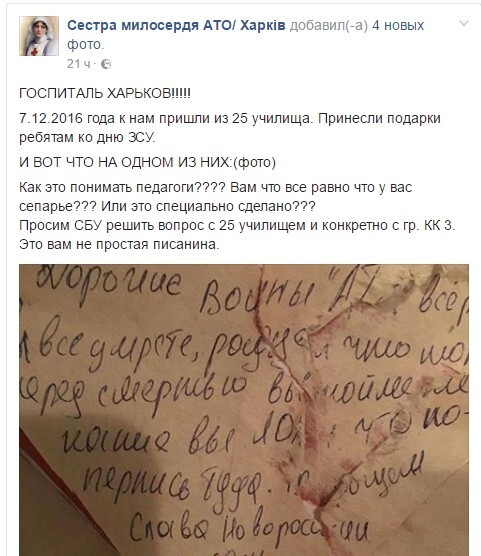 Сестра милосердя АТО/ Харків добавил(-а) 4 новых
фото.
21 ч ·
ГОСПИТАЛЬ ХАРЬКОВ!!!!!
7.12.2016 года к нам пришли из 25 училища. Принесли подарки
ребятам ко дню ЗСУ.
И ВОТ ЧТО НА ОДНОМ ИЗ НИХ:(фото)
Как это понимать педагоги???? Вам что все равно что у вас
сепарье??? Или это специально сделано???
Просим СБУ решить вопрос с 25 училищем и конкретно с гр. КК 3.
Это вам не простая писанина.
Дорогие Воины "АТ
все умрете,
перед смертью вы
какие вы что по-
перлись туда.
Слава Новороссии